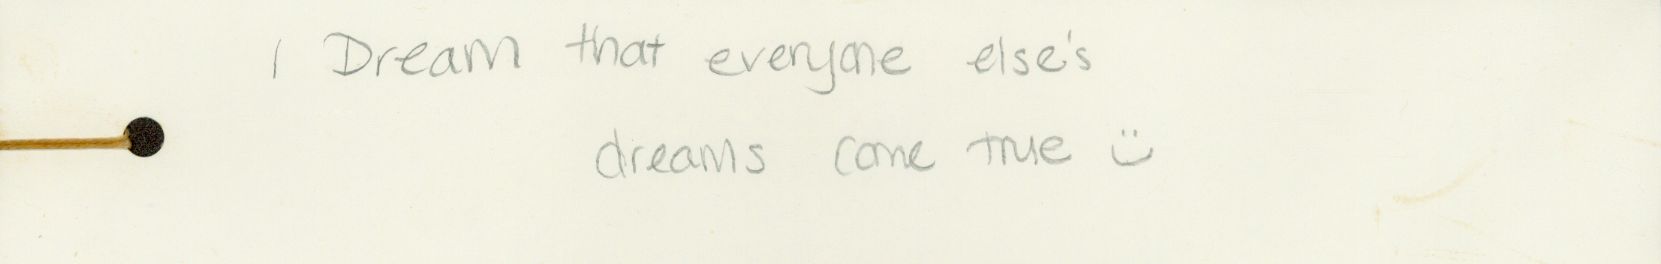 I Dream that everyone else's
dreams come true :)